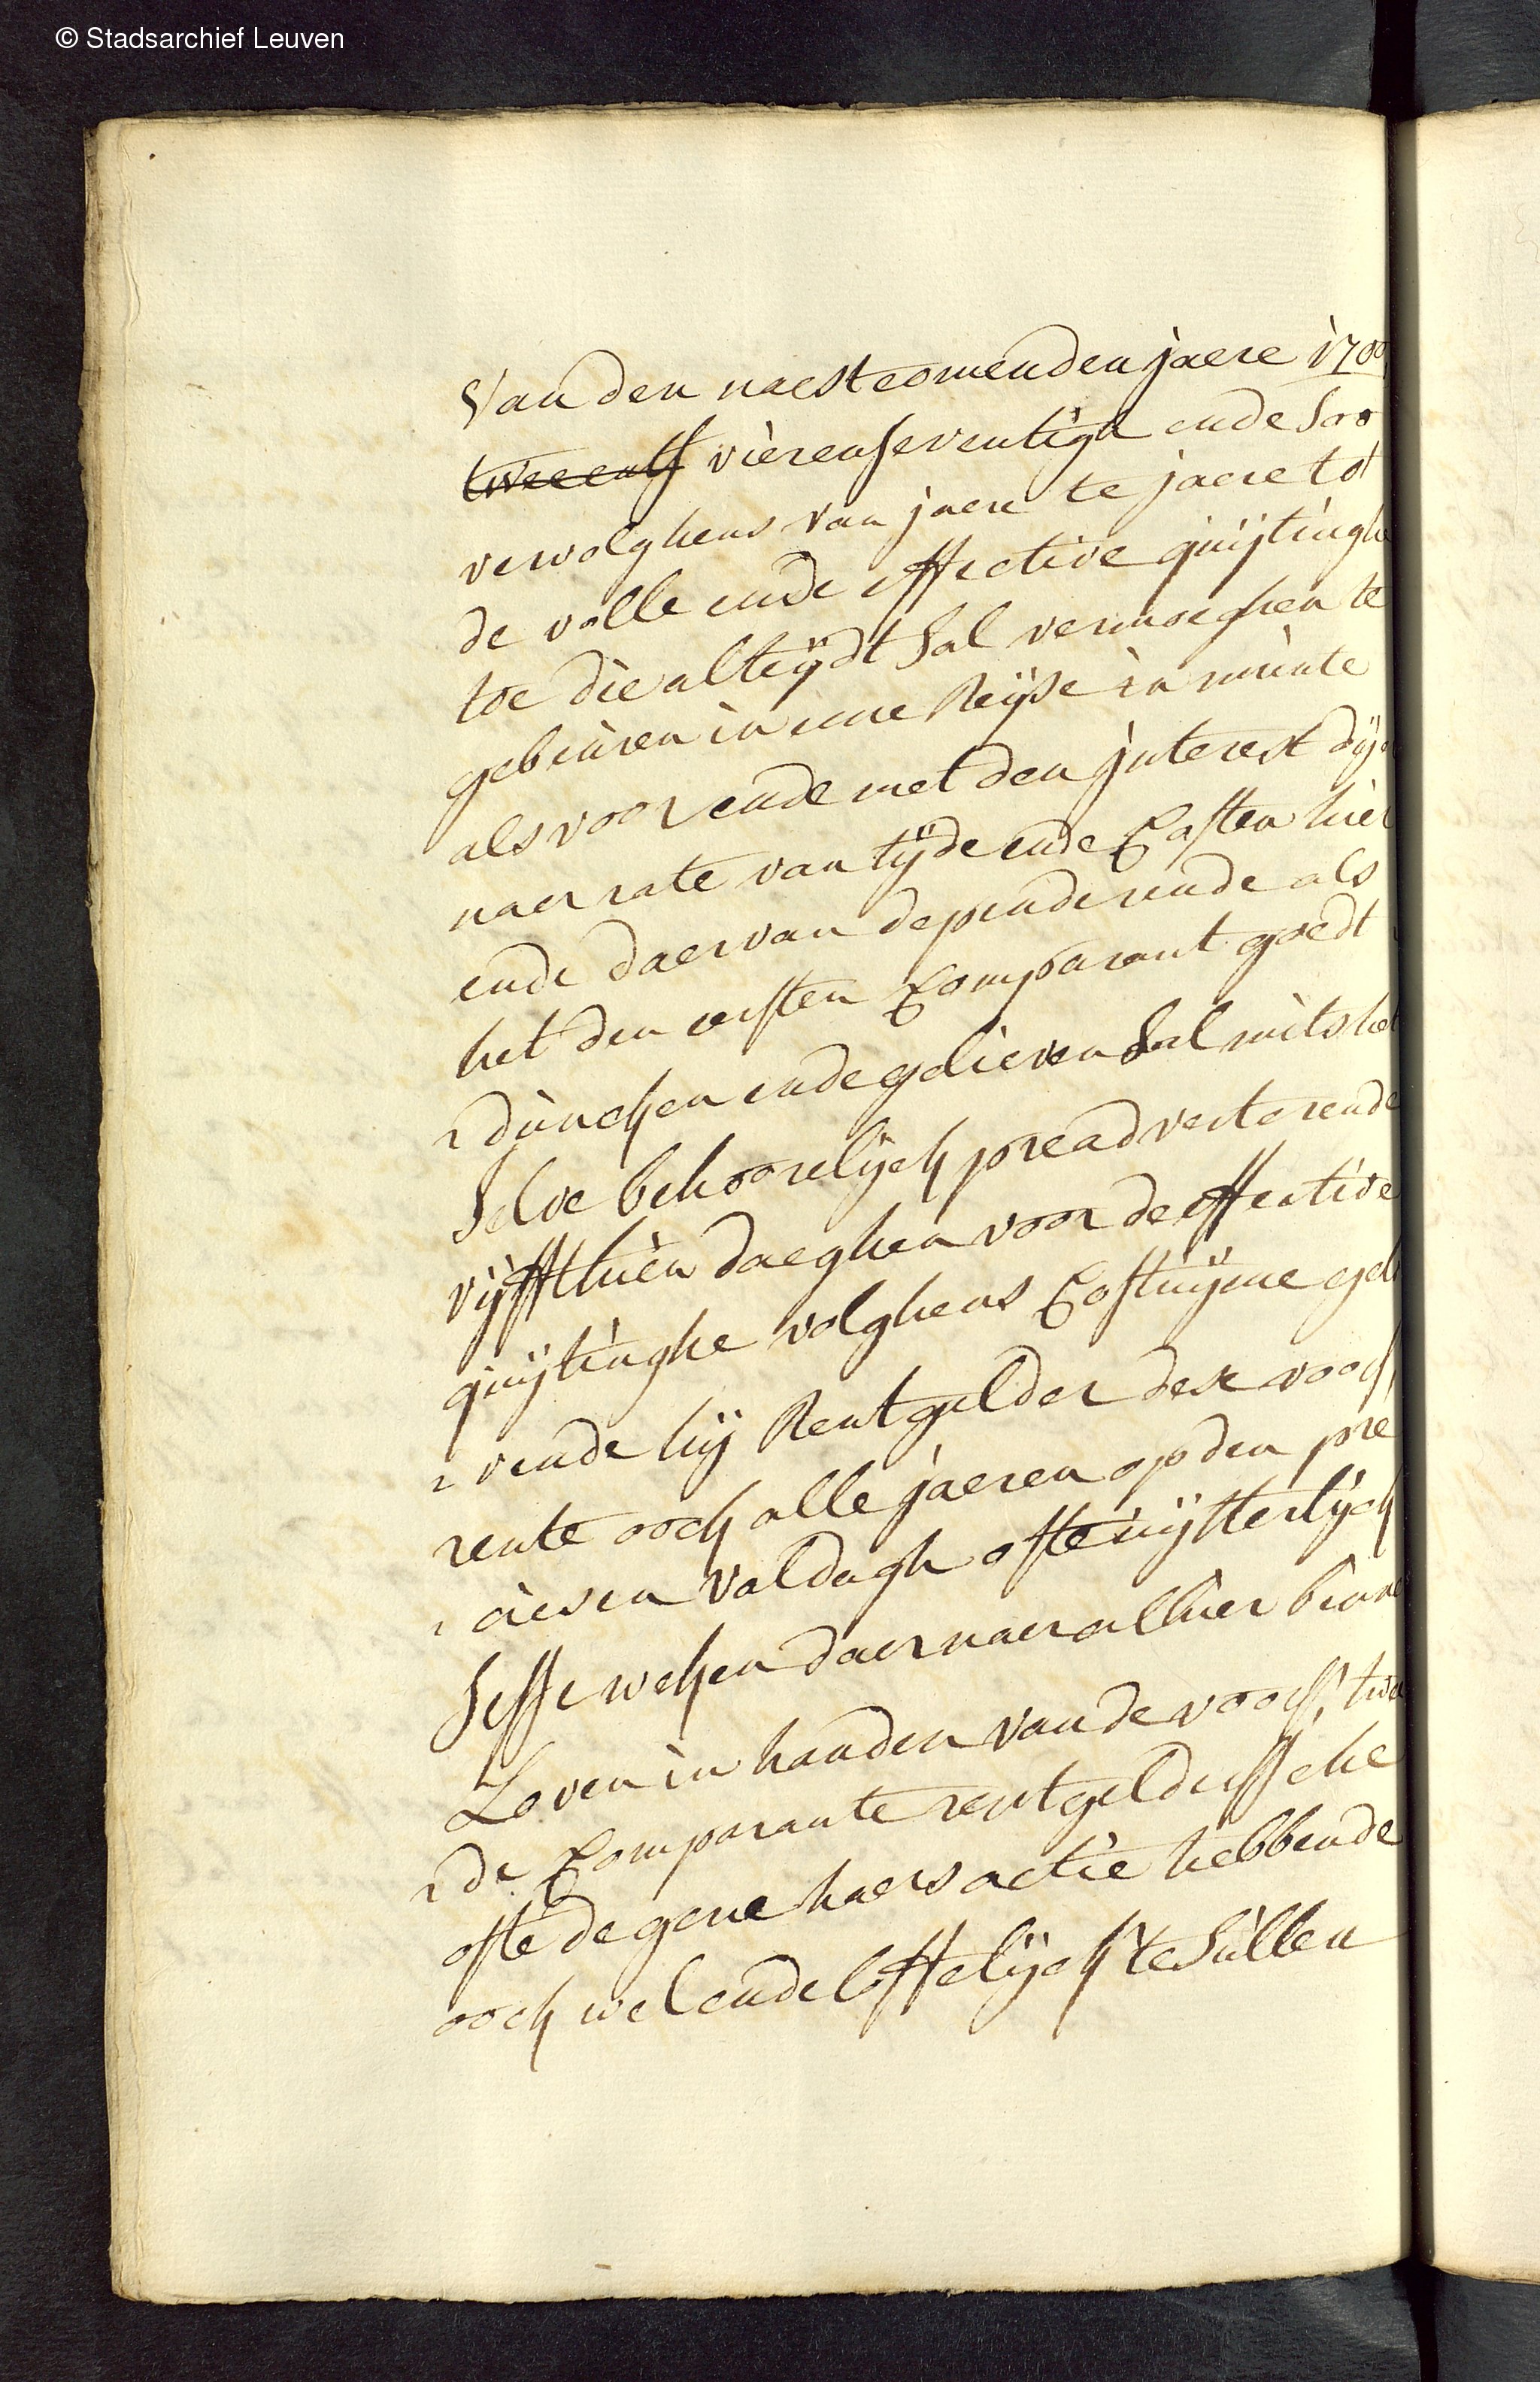 © Stadsarchief Leuven
Van den naestcomenden jaere 1700
tweeents vierenseventigh ende soo
vervolghens van jaere te jaere tot
de volle ende effective quijtinghe
toe die altijdt sal vermoghen te
gebeuren in eene Reijse in munte
als voor ende met den jnterest
naer rate van tijde ende Costen hier
ende daervan dependerende als
het den eersten Comparant goedt
duncken ende gelieven sal mits het
selve behoorelijck preadverterende
vijffthien daeghen voor de effective
quijtinghe volghens Costuijme gel
vende hij Rentgelder dese voors.
rente oock alle jaeren op den pre
ciesen valdagh ofte uijtterlijck
sesse weken daer naer alhier binne
Loven in handen van de voors. twee
de Comparante rentgelderssche
ofte de gene haers actie hebbende
oock wel ende loffelijck te sullen